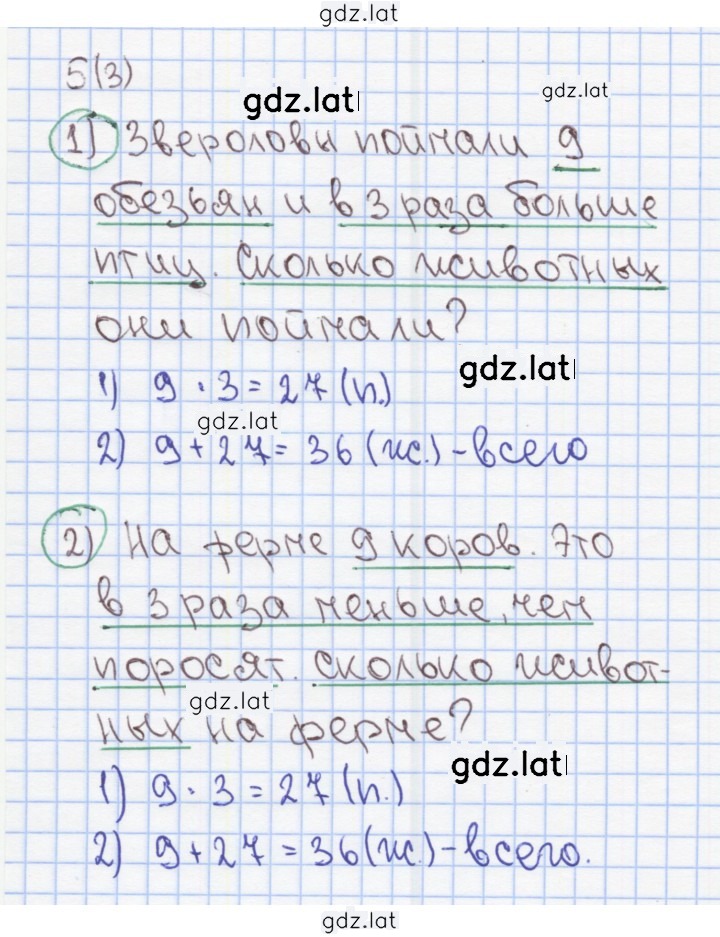 gdz.lat
5(3)
gdz.lat
gdz.lat
1) Звероловы поймали 9
обезьян и в 3 раза больше
птиц. Сколько животных
они поймали?
gdz.lat
1) 9 · 3 = 27 (п.)
gdz.lat
2) 9 + 27 = 36 (ж.) - всего
2) На ферме 9 коров. Это
в 3 раза меньше, чем
поросят. Сколько живот-
gdz.lat
ных на ферме?
gdz.lat
1) 9 · 3 = 27 (п.)
2) 9 + 27 = 36 (ж.) - всего.
gdz.lat